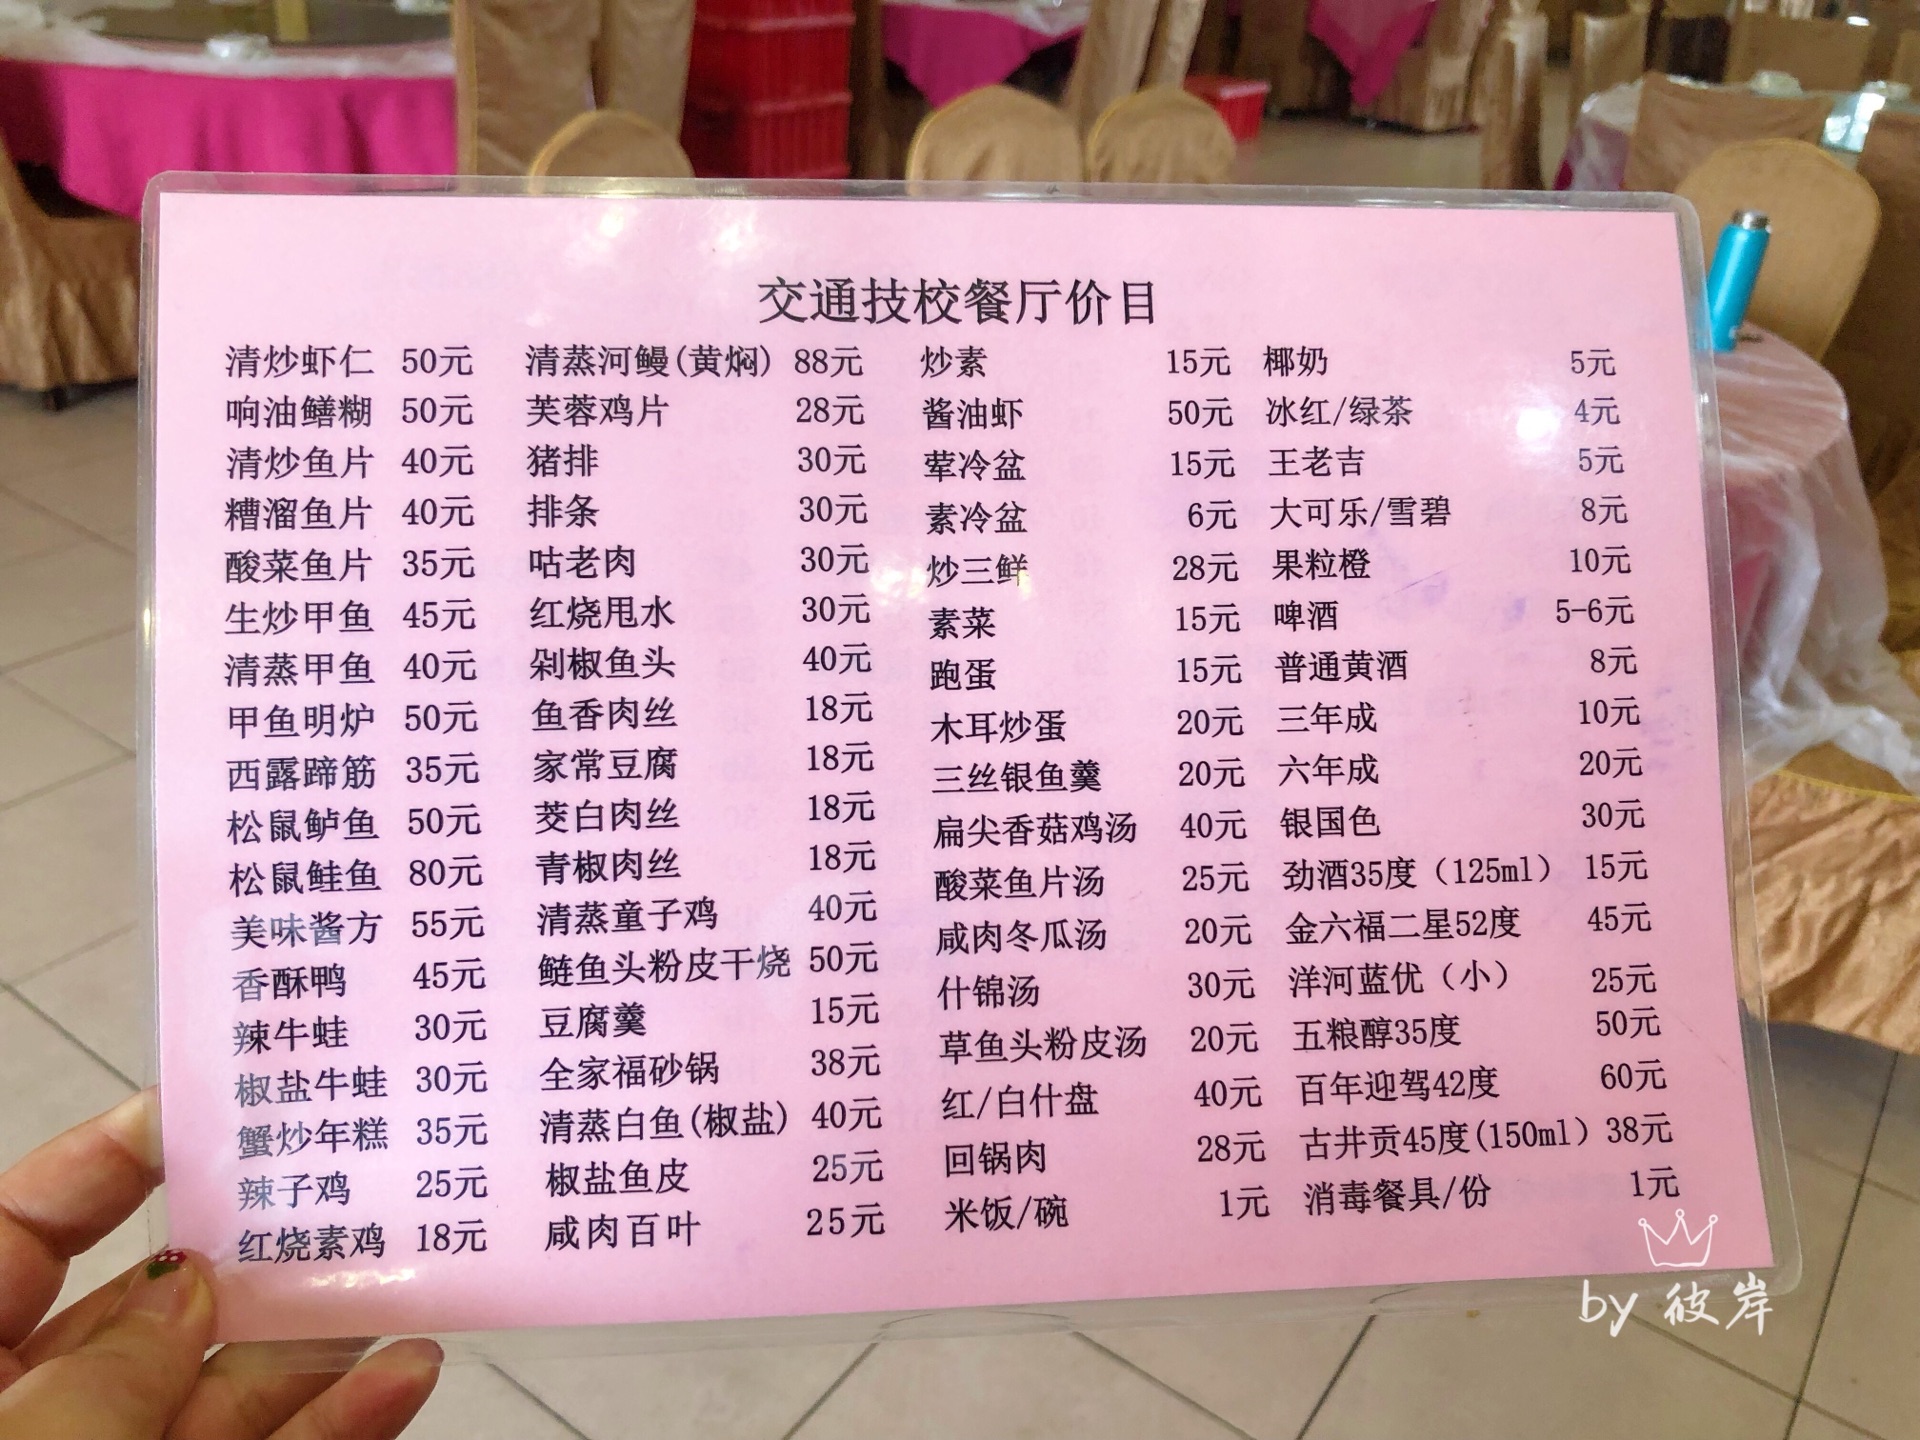 交通技校餐厅价目
清炒虾仁 50元 清蒸河鳗(黄焖) 88元 炒素 15元 椰奶 5元
响油鳝糊 50元 芙蓉鸡片 28元 酱油虾 50元 冰红/绿茶 4元
清炒鱼片 40元 猪排 30元 荤冷盆 15元 王老吉 5元
糟溜鱼片 40元 排条 30元 素冷盆 6元 大可乐/雪碧 8元
酸菜鱼片 35元 咕老肉 30元 炒三鲜 28元 果粒橙 10元
生炒甲鱼 45元 红烧甩水 30元 素菜 15元 啤酒 5-6元
清蒸甲鱼 40元 剁椒鱼头 40元 跑蛋 15元 普通黄酒 8元
甲鱼明炉 50元 鱼香肉丝 18元 木耳炒蛋 20元 三年成 10元
西露蹄筋 35元 家常豆腐 18元 三丝银鱼羹 20元 六年成 20元
松鼠鲈鱼 50元 茭白肉丝 18元 扁尖香菇鸡汤 40元 银国色 30元
松鼠鲑鱼 80元 青椒肉丝 18元 酸菜鱼片汤 25元 劲酒35度（125ml） 15元
美味酱方 55元 清蒸童子鸡 40元 咸肉冬瓜汤 20元 金六福二星52度 45元
香酥鸭 45元 鲢鱼头粉皮干烧 50元 什锦汤 30元 洋河蓝优（小） 25元
辣牛蛙 30元 豆腐羹 15元 草鱼头粉皮汤 20元 五粮醇35度 50元
椒盐牛蛙 30元 全家福砂锅 38元 红/白什盘 40元 百年迎驾42度 60元
蟹炒年糕 35元 清蒸白鱼(椒盐) 40元 回锅肉 28元 古井贡45度(150ml) 38元
辣子鸡 25元 椒盐鱼皮 25元 米饭/碗 1元 消毒餐具/份 1元
红烧素鸡 18元 咸肉百叶 25元
by 彼岸